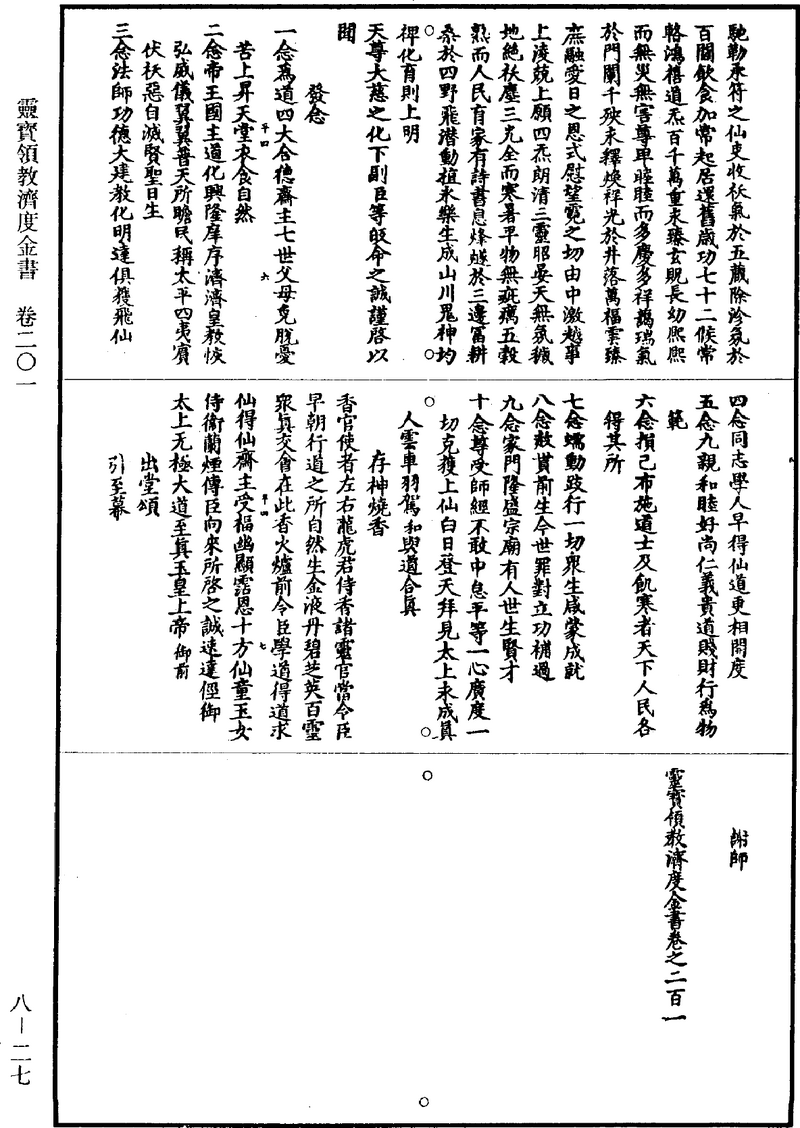 靈寶領教濟度金書 卷二〇一
八—二七
馳勒承符之仙吏收袄氣於五藏除沴氛於
百關飲食加常起居還舊歲功七十二候常
輅鴻禧道炁百千萬重来臻玄貺長幼熙熙
而無災無害尊卑睦睦而多慶多祥藹瑞氣
於門闌千殃求釋煥祥光於井落萬福雲臻
庶融愛日之恩式慰望霓之切由中激越事
上淩兢上願四炁朗清三靈昭晏天無氛穢
地絶袄塵三光全而寒暑平物無疵癘五穀
熟而人民育家有詩書息烽燧於三邊富耕
桑於四野飛潜動植永樂生成山川鬼神均
禆化育則上明
天尊大慈之化下副臣等皈命之誠謹啓以
聞
發念
一念爲道四大合德齋主七世父母克脫憂
苦上昇天堂衣食自然
二念帝王國主道化興隆庠序濟濟皇教恢
弘威儀翼翼普天所瞻民稱太平四夷賓
伏袄惡自滅賢聖日生
三念法師功德大建教化明達俱獲飛仙
四念同志學人早得仙道更相開度
五念九親和睦好尚仁義貴道賤財行爲物
範
六念損己布施道士及飢寒者天下人民各
得其所
七念蠕動跂行一切衆生咸蒙成就
八念赦貰前生今世罪對立功補過
九念家門隆盛宗廟有人世生賢才
十念尊受師經不敢中怠平等一心廣度一
切克獲上仙白日登天拜見太上永成真
人雲車羽駕和與道合真
存神燒香
香官使者左右龍虎君侍香諸靈官當令臣
早朝行道之所自然生金液丹碧芝英百靈
衆真交會在此香火爐前令臣學道得道求
仙得仙齋主受福幽顯霑恩十方仙童玉女
侍衛蘭煙傳臣向來所啓之誠速達徑御
太上无極大道至真玉皇上帝御前
出堂頌
引至幕
謝師
靈寶領教濟度金書卷之二百一